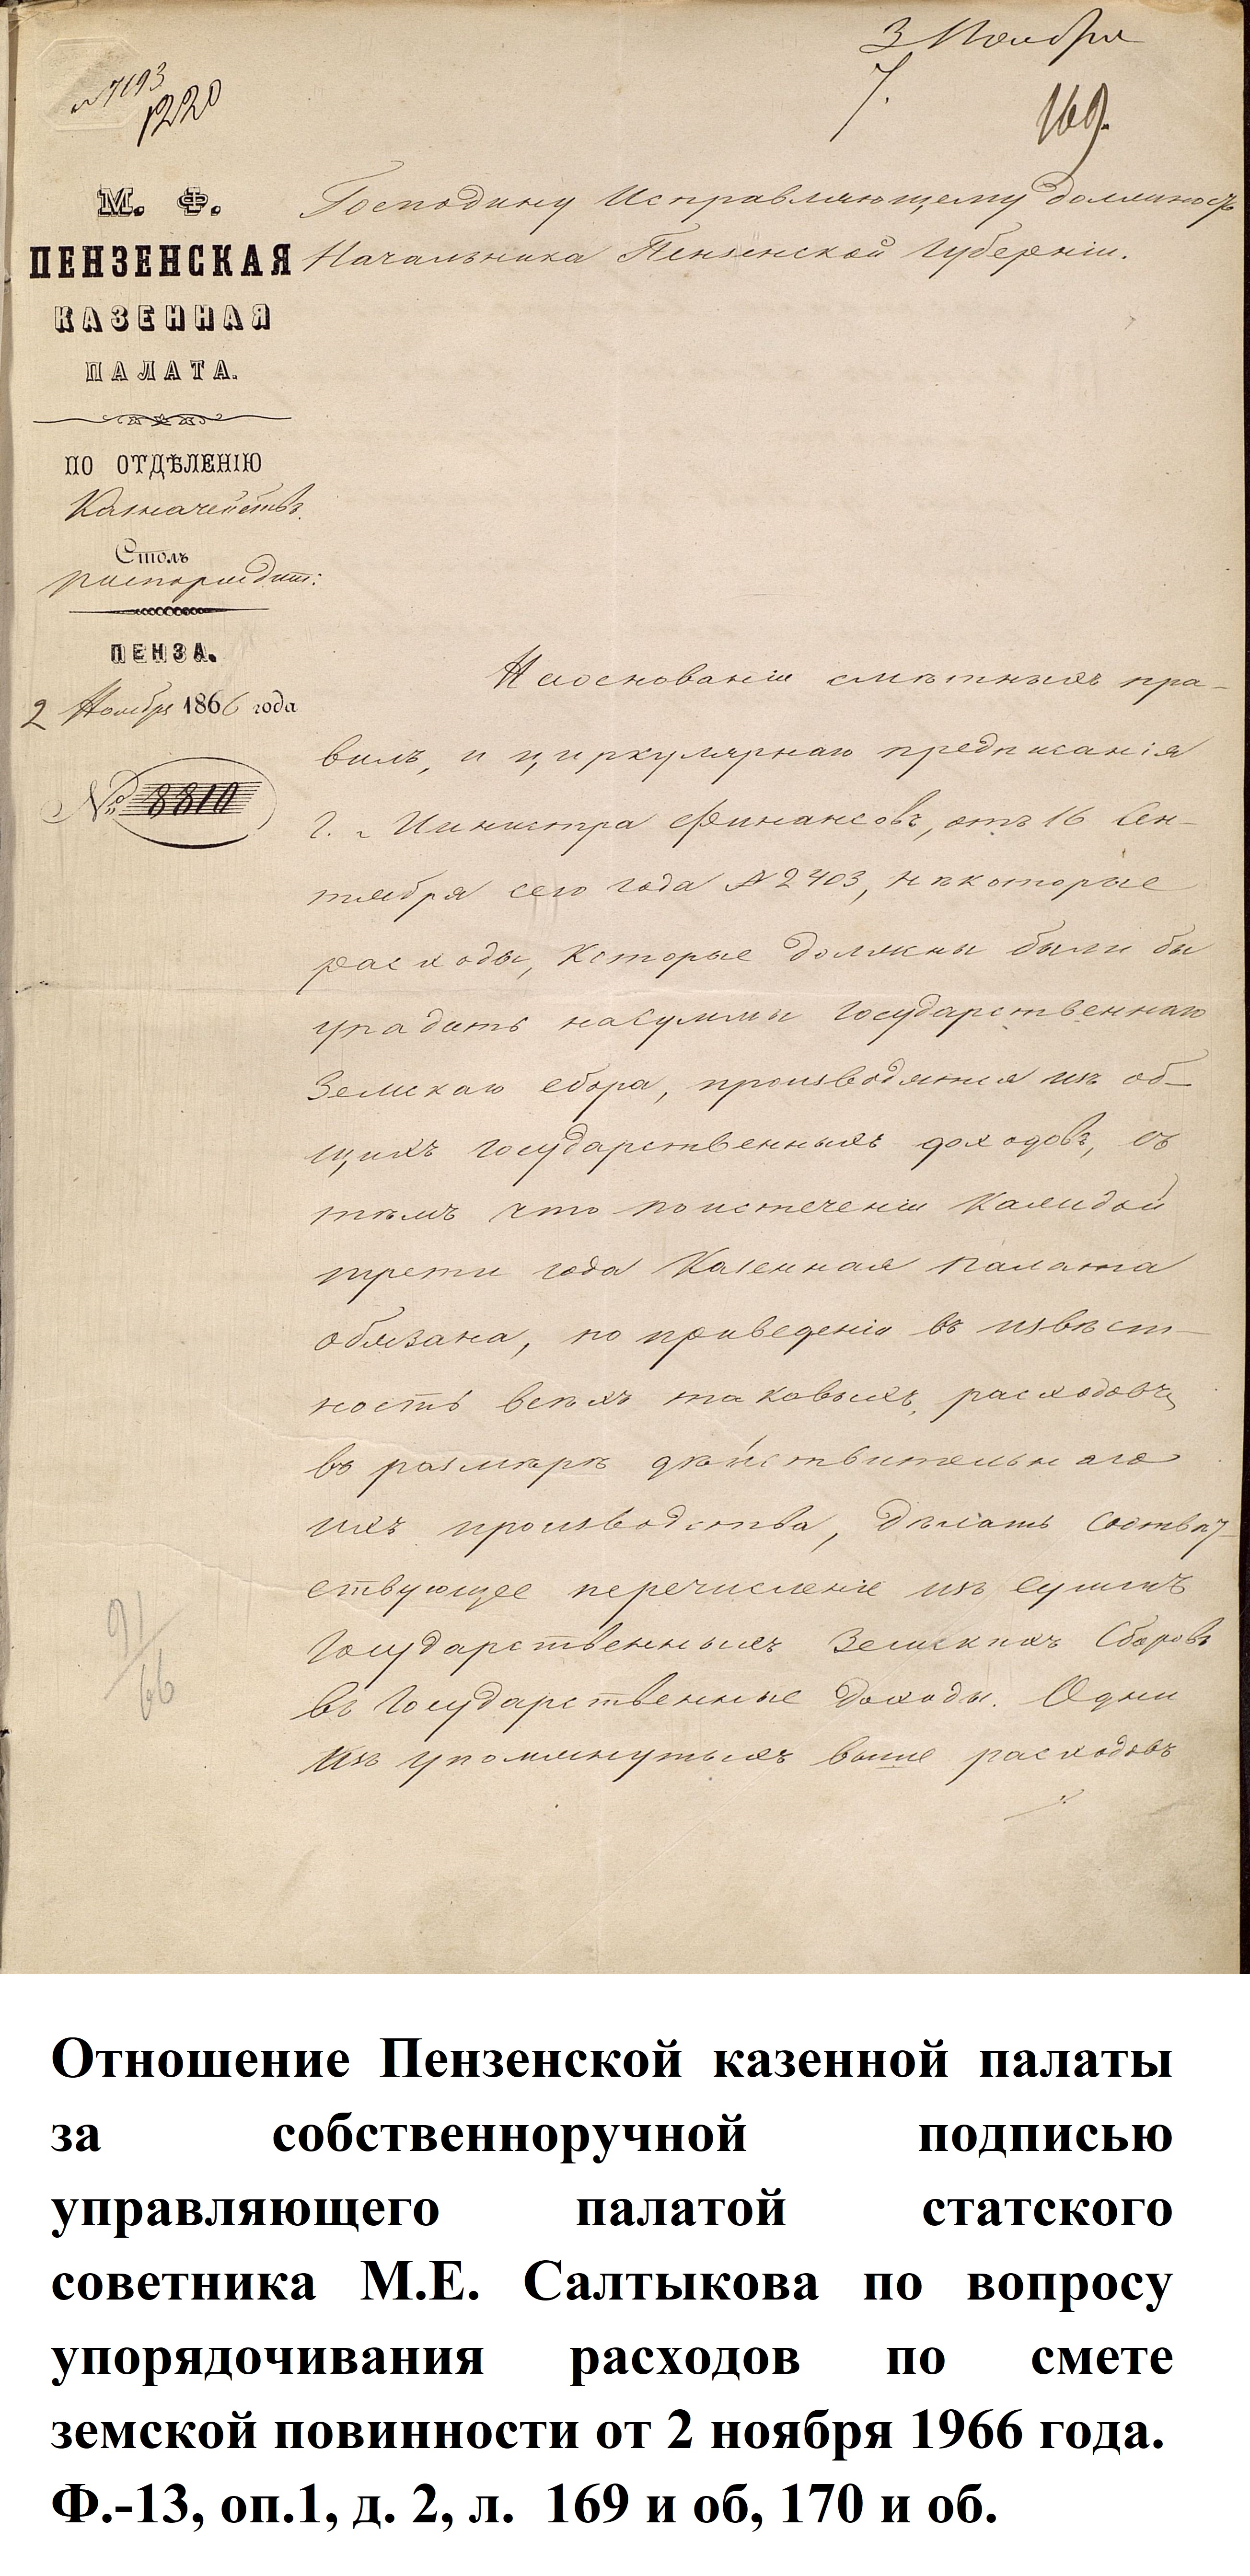 3 Ноября
7.
169.
№ 7193
1220
М. Ф.
ПЕНЗЕНСКАЯ
КАЗЕННАЯ
ПАЛАТА.
ПО ОТДѢЛЕНІЮ
Казначействъ
Столъ
распорядит:
ПЕНЗА.
2 Ноября 1866 года
№ 8810
Господину Исправляющему должность
Начальника Пензенской Губерніи.
На основаніи смѣтныхъ пра-
вилъ, и циркулярнаго предписанія
Г. Министра Финансовъ, отъ 16 Сен-
тября сего года № 2403, нѣкоторые
расходы, которые должны были бы
упадать на суммы Государственнаго
Земскаго сбора, производятся изъ об-
щихъ Государственныхъ доходовъ, съ
тѣмъ что по истеченіи каждой
трети года Казенная палата
обязана, по приведеніи въ извѣст-
ность всѣхъ таковыхъ расходовъ
въ размѣрѣ дѣйствительнаго
ихъ производства, дѣлать соотвѣт-
ствующее перечисленіе изъ суммъ
Государственныхъ Земскихъ Сборовъ
въ Государственные доходы. Одни
изъ упомянутыхъ выше расходовъ
91/66
Отношение Пензенской казенной палаты
за собственноручной подписью
управляющего палатой статского
советника М.Е. Салтыкова по вопросу
упорядочивания расходов по смете
земской повинности от 2 ноября 1966 года.
Ф.-13, оп.1, д. 2, л. 169 и об, 170 и об.